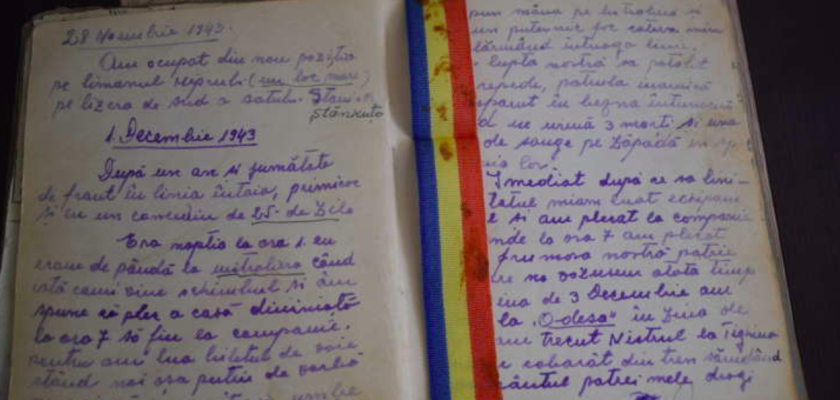 28 Noembrie 1943.
Am ocupat din nou poziția
pe limanul Niprului (un loc mare)
pe lizera de sud a satului Stani
Stănkuța
1. Decembrie 1943
După un an și jumătate
de front în linia întâia, primirc
și eu un concediu de 25. de Zile
Era noaptia la ora 1. eu
eram de pândă la mitraliera când
iată cami vine schimbul și âmi
spune că plec a casă diminiață
la ora 7 să fiu la companie.
pentru ami lua biletul de voie
stând noi așa puțin de vorbă
umbre
pun mâna pe mitraliera și
un puternic foc
dărmând intreaga linie.
lupta nostră sa potolit
repede, patrula inamică
sparut în bezna intunericu
in urmă 3 morți și una
de sange pe Zăpadă
lor.
Imediat după ce sa lini-
ștatul miam luat echipam
și am plecat la companie
unde la ora 7 am plecat
frumosa nostră patrie
re no văzusem atata timp
iua de 3 Decembrie am
la "Odesa" în Ziua de
am trecut Nistrul la Tighina
coborât din tren sărutând
pământul patrei mele dragi